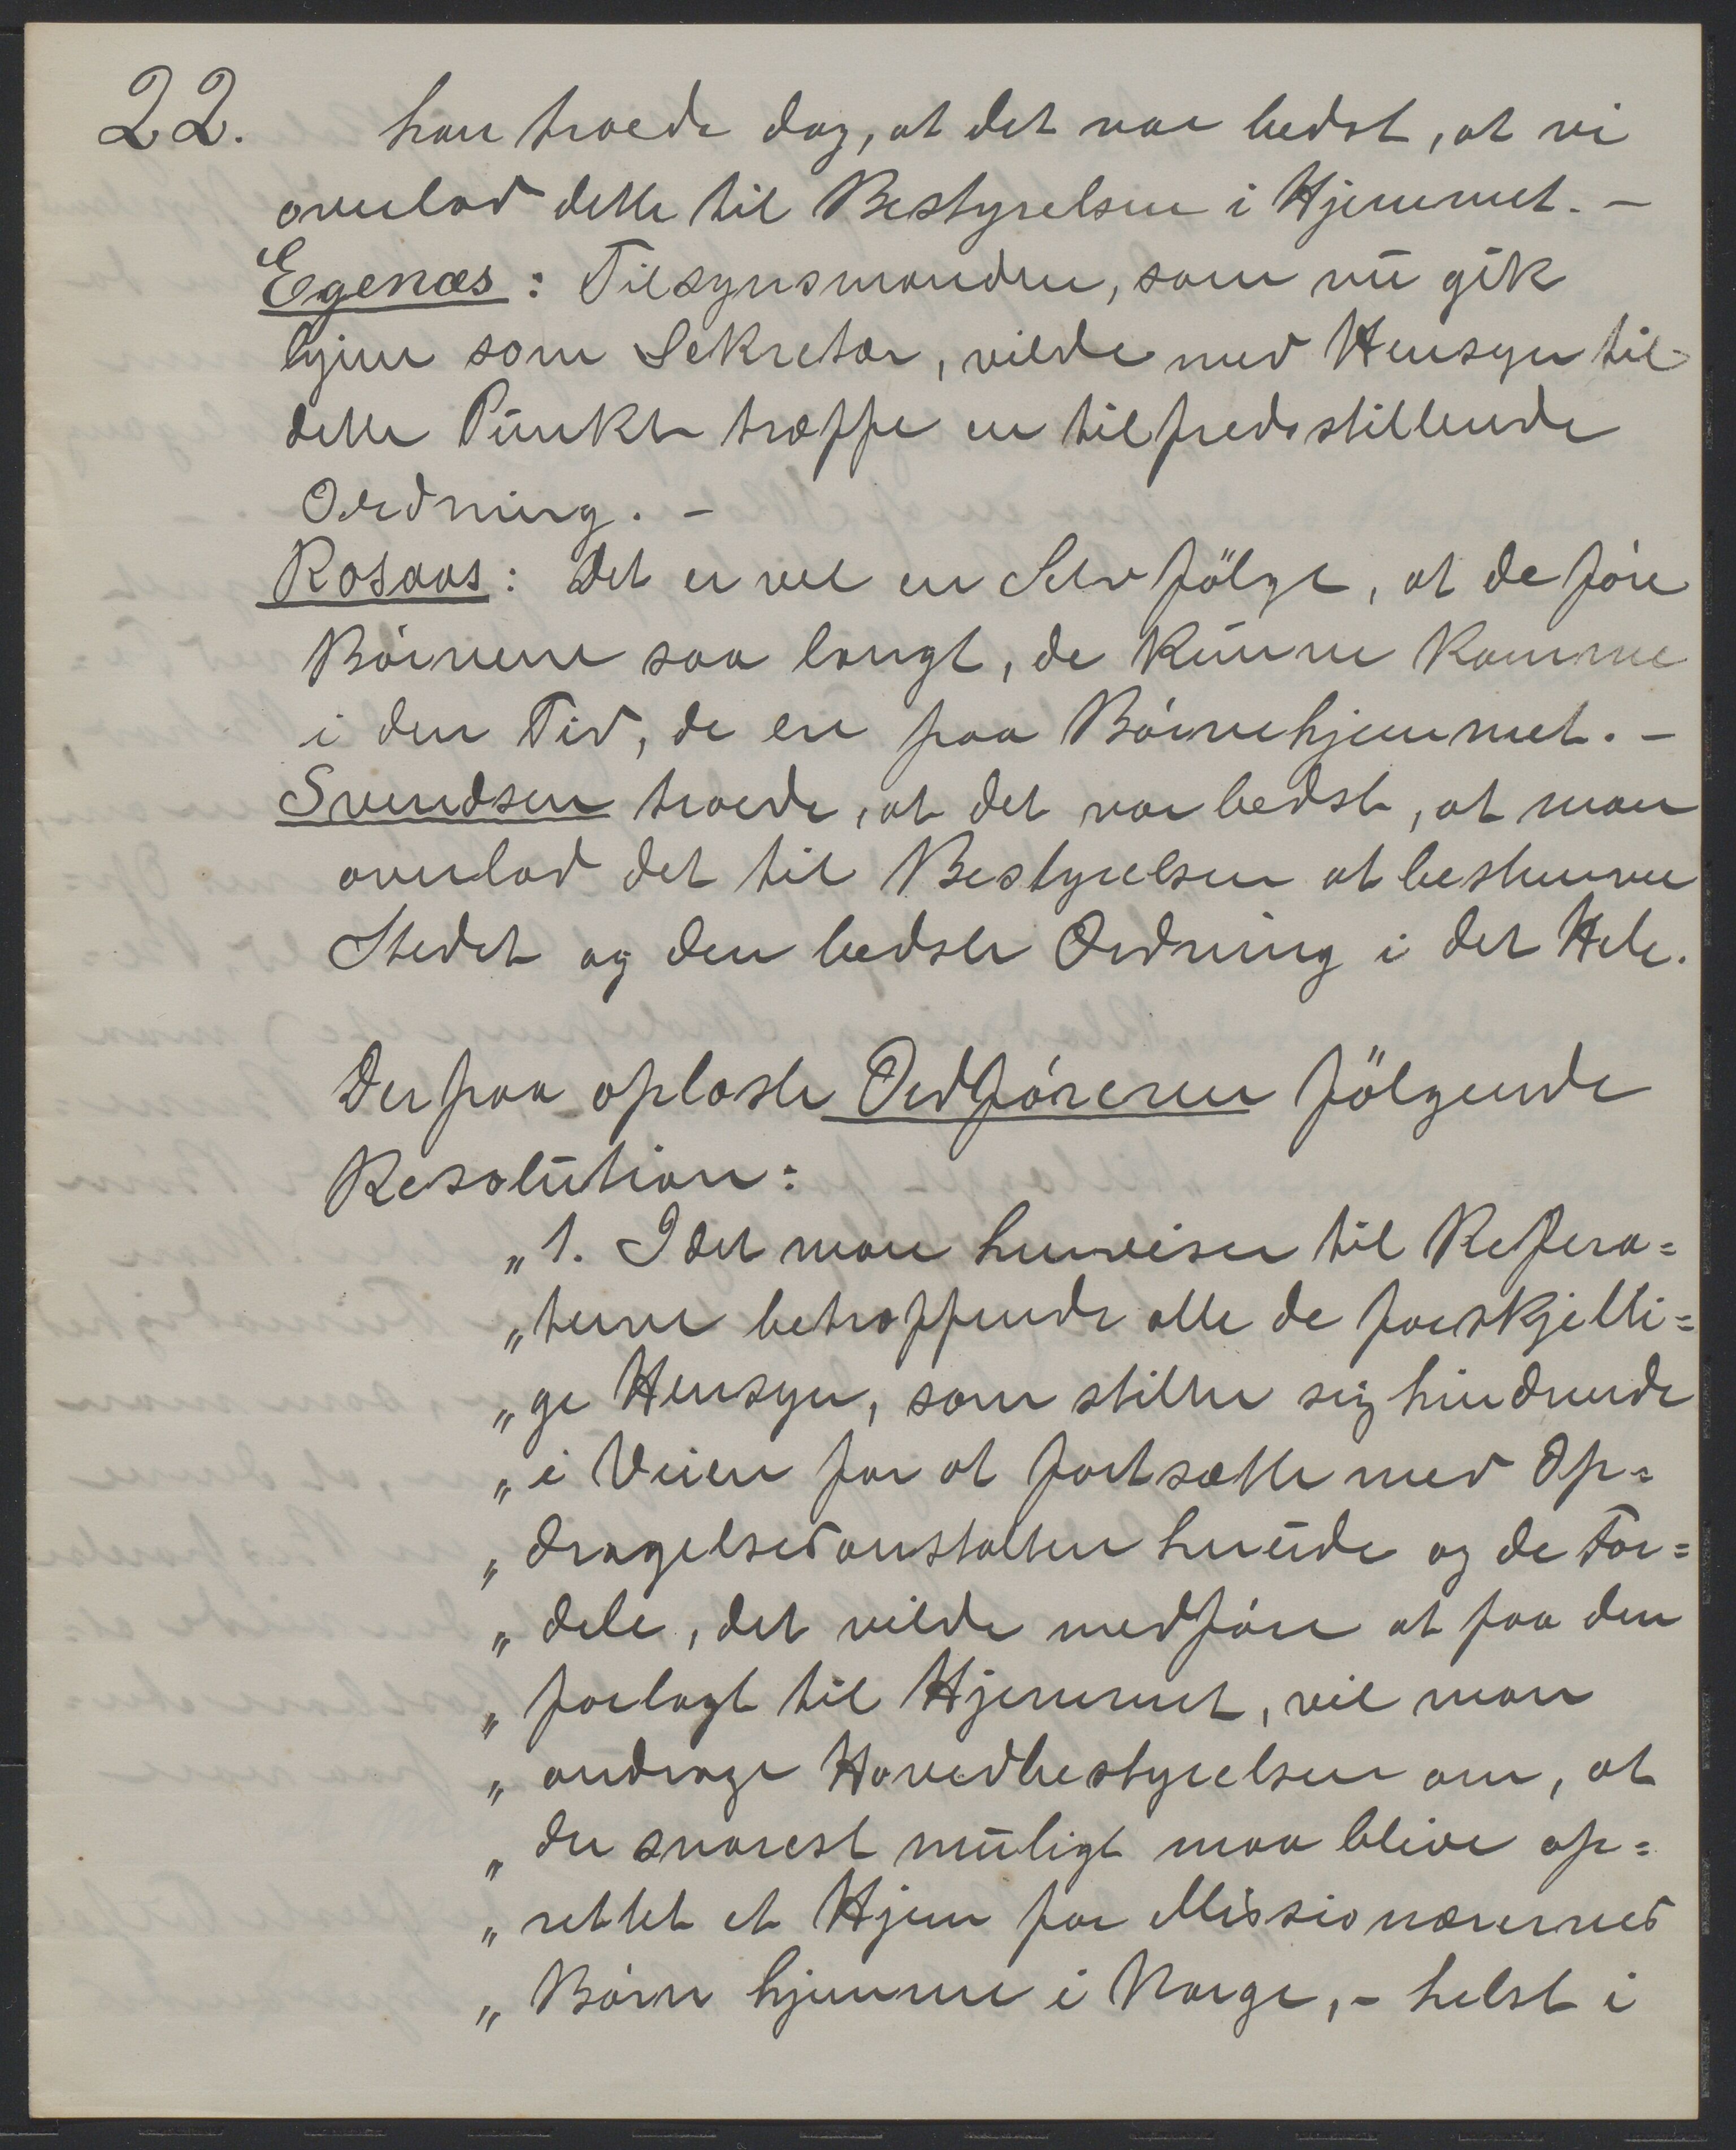 22. han troede dog, at det var bedst, at vi
overlod dette til Bestyrelsen i Hjemmet. –
Egenæs: Tilsynsmanden, som nu gik
hjem som Sekretær, vilde med Hensyn til
dette Punkt træffe en tilfredsstillende
Ordning. –
Rosaas: Det er vel en Selvfölge, at de före
Börnene saa langt, de kunne komme
i den Tid, de er paa Börnehjemmet. –
Svendsen troede, at det var bedst, at man
overlod det til Bestyrelsen at bestemme
Stedet og den bedste Ordning i det Hele.
Derpaa oplæste Ordföreren fölgende
Resolution:
„1. Idet man henviser til Refera=
„terne betræffende alle de forskjelli=
„ge Hensyn, som stiller sig hindrende
„i Veien for at fortsætte med Op=
„dragelsesanstalten herude og de For=
„dele, det vilde medföre at faa den
„forlagt til Hjemmet, vil man
„andrage Hovedbestyrelsen om, at
„der snarest muligt maa blive op=
„rettet et Hjem for Missionærernes
„Börn hjemme i Norge, – helst i